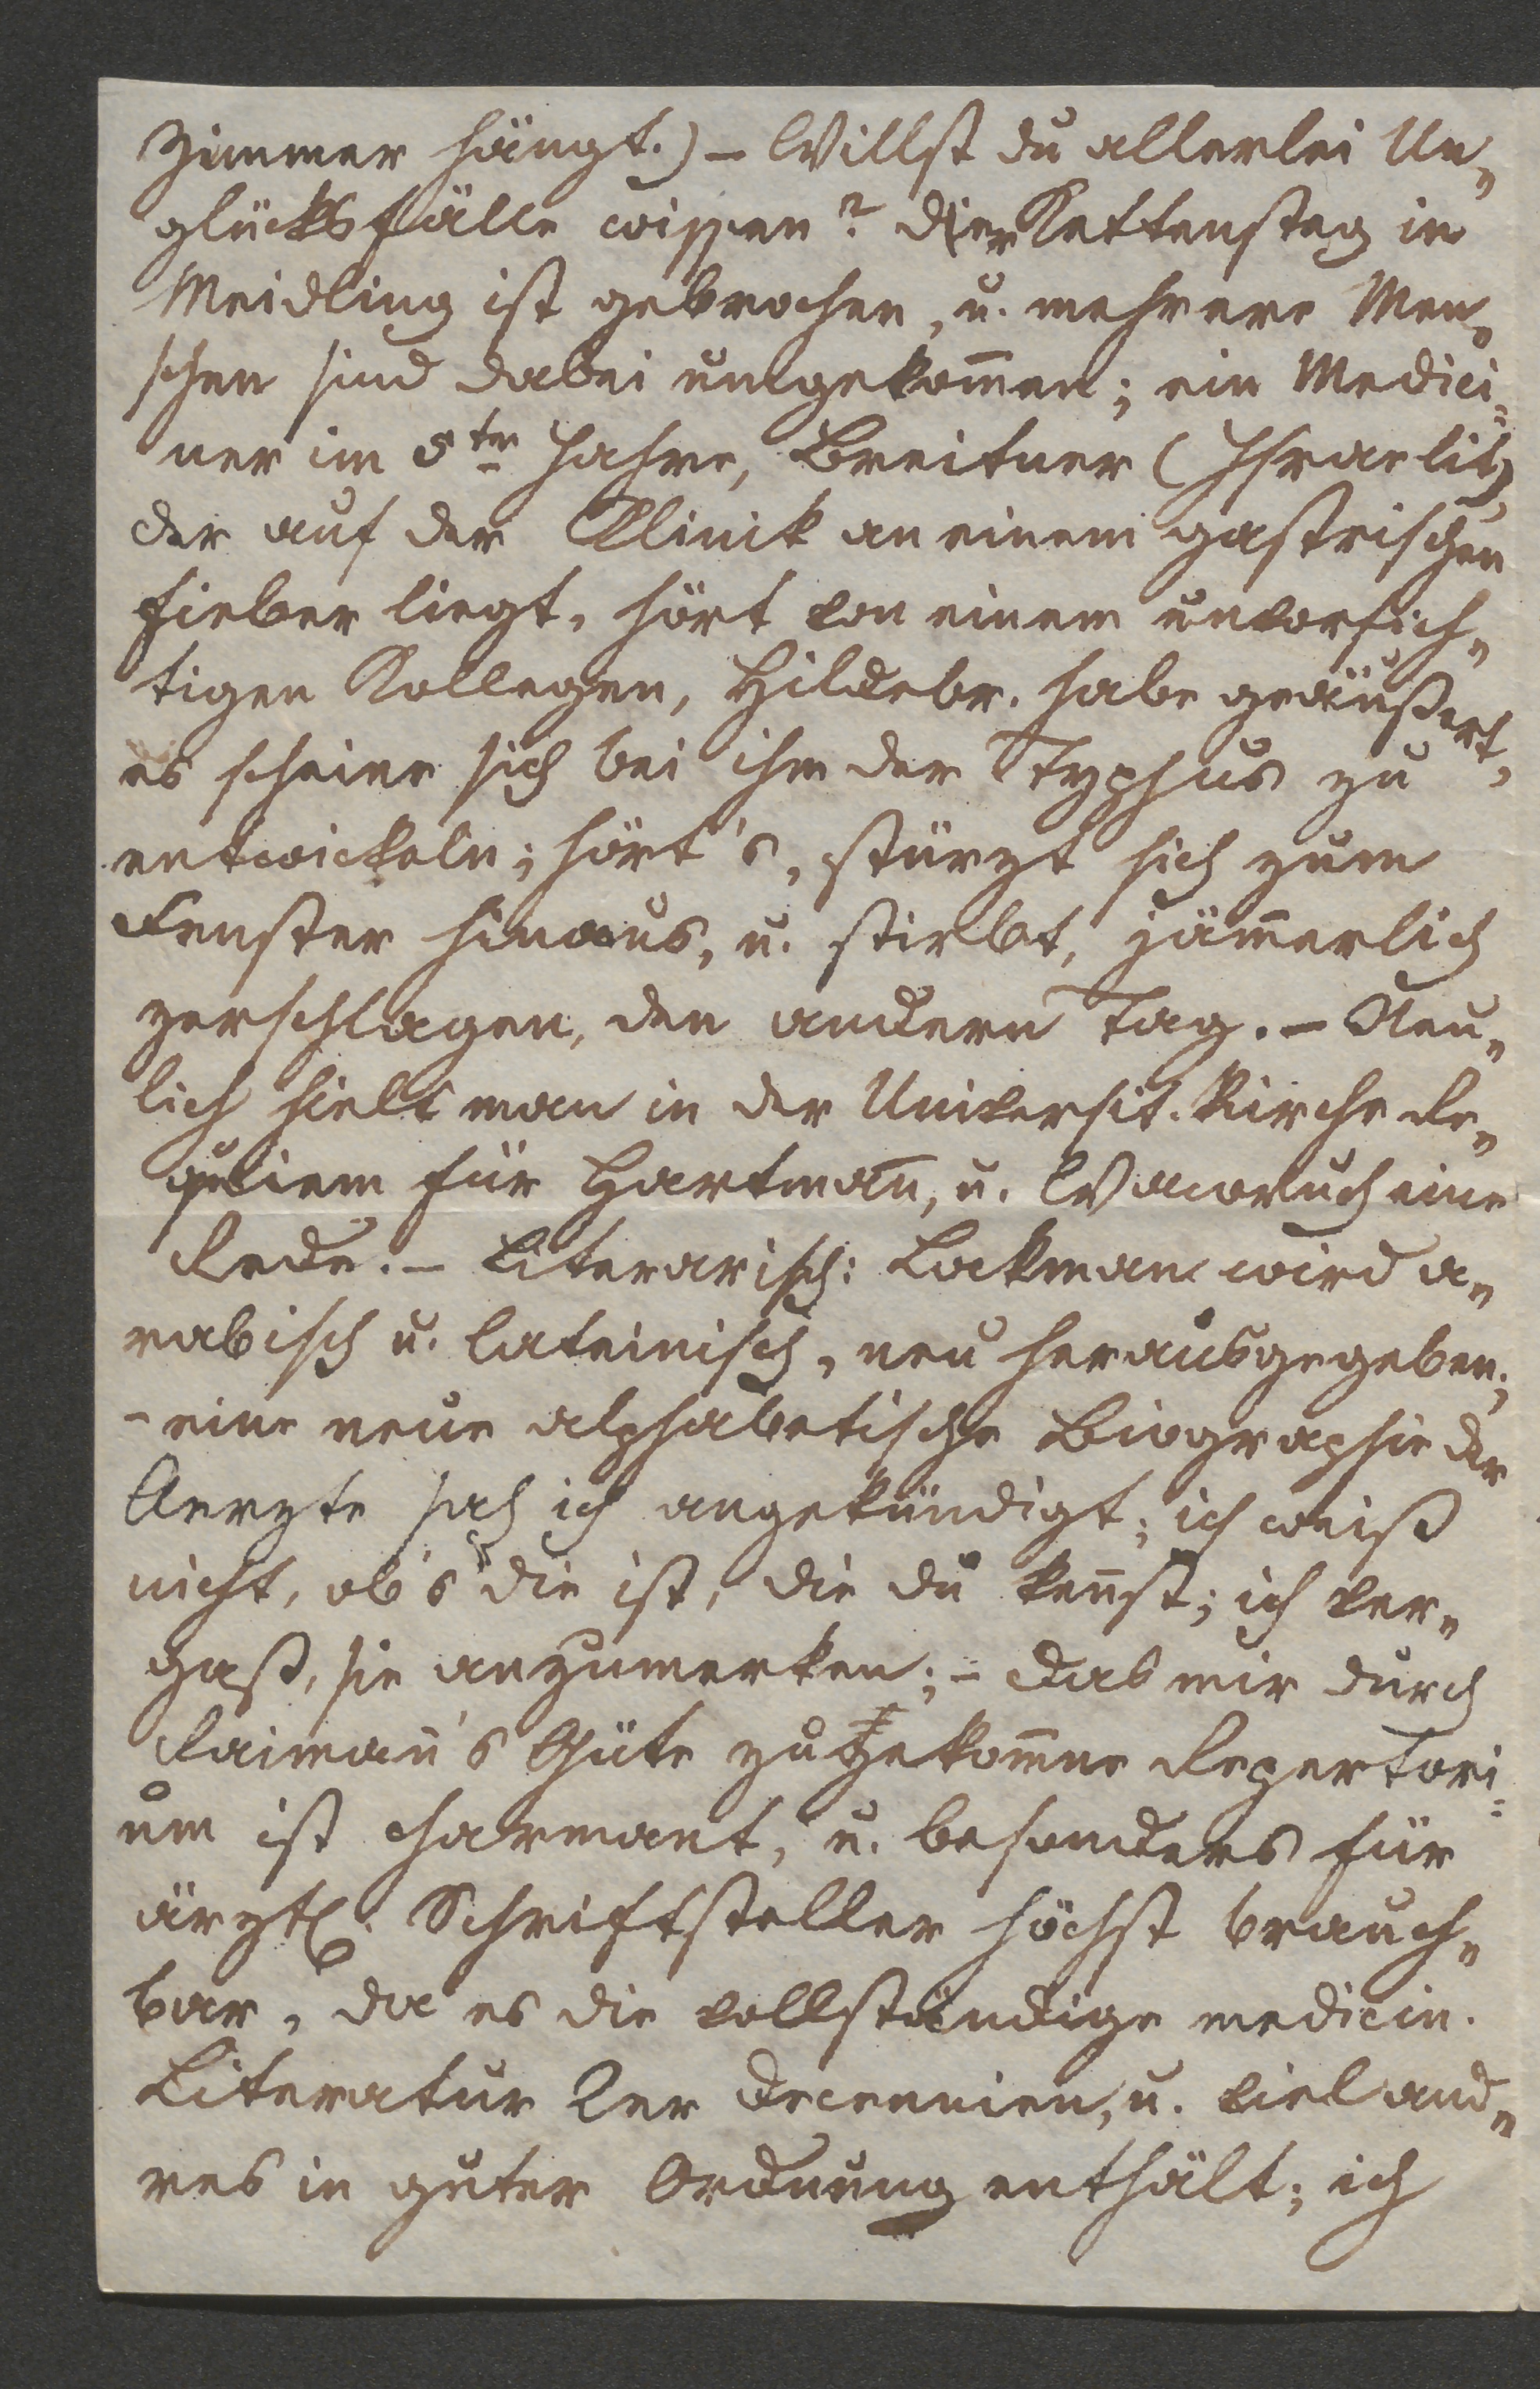 Zimmer hängt.) – Willst du allerlei Un„
glücksfälle wissen? Der Kettensteg in
Meidling ist gebrochen, u. mehrere Men„
schen sind dabei umgekom̅en; ein Medici„
ner im 5ten Jahre, Breitner (Israelit)
der auf der Klinik an einem gastrischen
Fieber liegt, hört von einem unvorsich„
tigen Kollegen, Hildebr. habe geäußert,
es scheine sich bei ihm der Typhus zu
entwickeln; hört's, stürzt sich zum
Fenster hinaus, u. stirbt, jäm̅erlich
zerschlagen, den andern Tag. – Neu„
lich hielt man in der Universit. Kirche Re„
quiem für Hartman̅, u. Wawruch eine
Rede. – Literarisch: Lockman wird a„
rabisch u. lateinisch, neu herausgegeben;
– eine neue alphabetische Biographie der
Aerzte sah ich angekündigt; ich weiß
nicht, ob's die ist, die du ken̅st; ich ver„
gaß, sie anzumerken; – das mir durch
Raiman̅'s Güte zugekom̅ne Repertori„
um ist charmant, u. besonders für
ärztl. Schriftsteller höchst brauch„
bar, da es die vollständige medicin.
Literatur 2er Decennien, u. viel and„
res in guter Ordnung enthält; ich